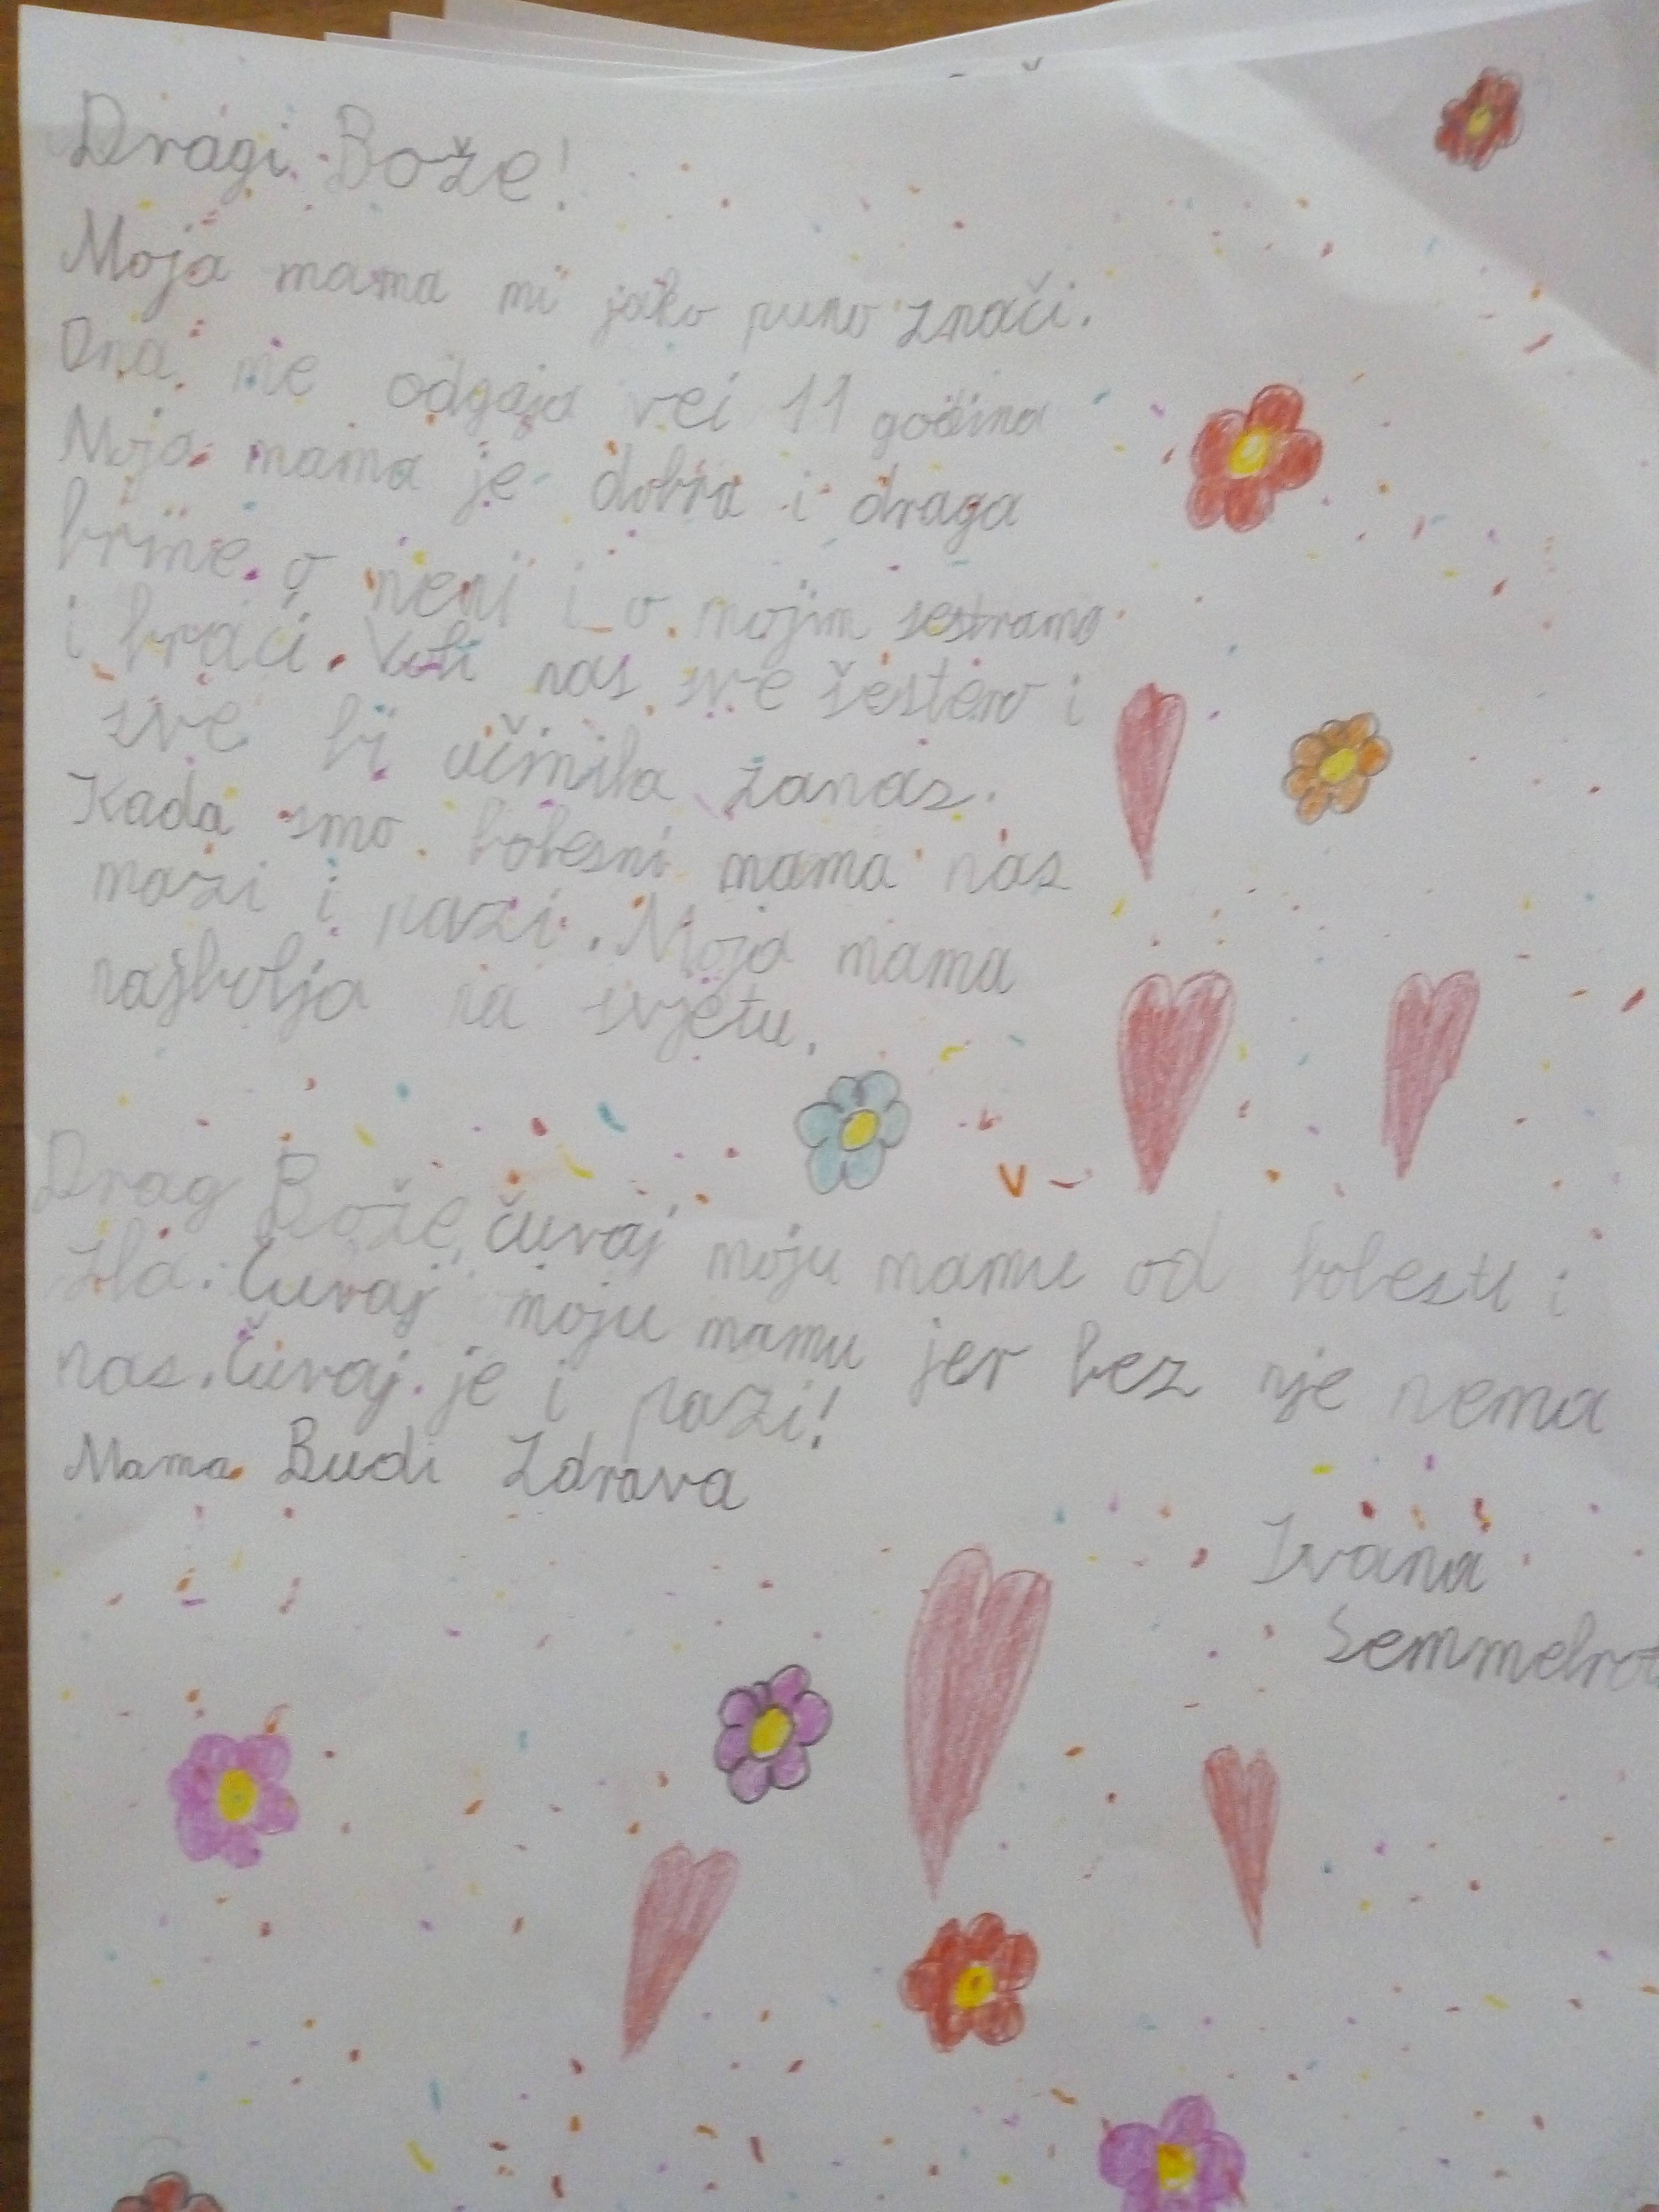 Dragi Bože!
Moja mama mi jako puno znači.
Ona me odgaja vei 11 godina
Moja mama je dobra i draga
brine o meni i o mojim sestrama
i braći. Voli nas sve šestero i
sve bi učinila zanas.
Kada smo bolesni mama nas
mazi i pazi. Moja mama
najbolja na svjetu.
Drag Bože, čuvaj moju mamu od bolesti i
zla. Čuvaj moju mamu jer bez nje nema
nas. Čuvaj je i pazi!
Mama Budi Zdrava
Ivana